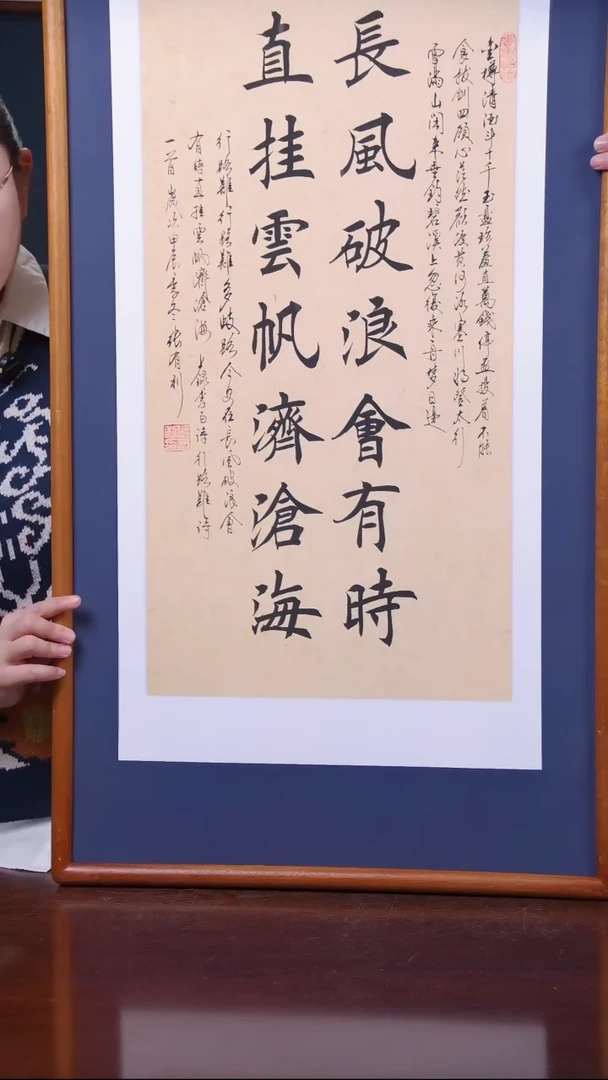 金樽清酒斗十千玉盤珍羞直萬錢停盃投箸不能
食拔劍四顧心茫然欲渡黃河冰塞川將登太行
雪滿山閑來垂釣碧溪上忽復乘舟夢日邊
長風破浪會有時
直挂雲帆濟滄海
行路難行路難多歧路今安在長風破浪會
有時直挂雲帆濟滄海上錄李白詩行路難詩
一首歲次甲辰季冬張有利